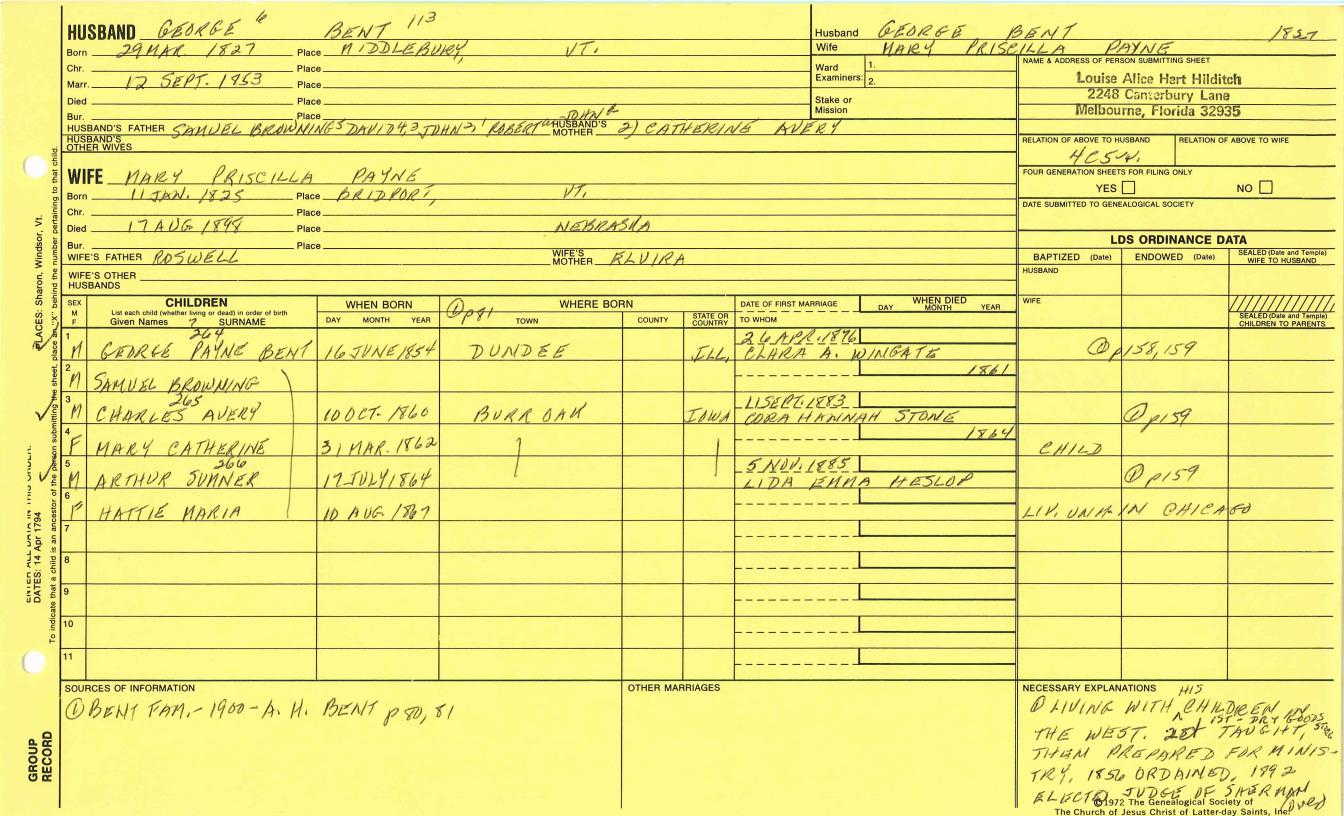 HUSBAND GEORGE 6 BENT 113
Born 29 MAR 1827 Place MIDDLEBURY, VT.
Chr. Place
Marr. 12 SEPT. 1853 Place
Died Place
Bur. Place
HUSBAND'S FATHER SAMUEL BROWNING5 DAVID4,3 JOHN2,1 ROBERT JOHN HUSBAND'S MOTHER 2) CATHERINE AVERY
HUSBAND'S OTHER WIVES
WIFE MARY PRISCILLA PAYNE
Born 11 JAN. 1825 Place BRIDPORT, VT.
Chr. Place
Died 17 AUG 1898 Place NEBRASKA
Bur. Place
WIFE'S FATHER ROSWELL WIFE'S MOTHER ELVIRA
WIFE'S OTHER HUSBANDS
Husband GEORGE BENT 1827
Wife MARY PRISCILLA PAYNE
Ward Examiners: 1.
2.
Stake or Mission
NAME & ADDRESS OF PERSON SUBMITTING SHEET
Louise Alice Hart Hilditch
2248 Canterbury Lane
Melbourne, Florida 32935
RELATION OF ABOVE TO HUSBAND RELATION OF ABOVE TO WIFE
4C5W.
FOUR GENERATION SHEETS FOR FILING ONLY
YES NO
DATE SUBMITTED TO GENEALOGICAL SOCIETY
LDS ORDINANCE DATA
BAPTIZED (Date) ENDOWED (Date) SEALED (Date and Temple) WIFE TO HUSBAND
HUSBAND
WIFE
SEALED (Date and Temple) CHILDREN TO PARENTS
SEX M F
CHILDREN
List each child (whether living or dead) in order of birth
Given Names 7 SURNAME
WHEN BORN
DAY MONTH YEAR
① p81 WHERE BORN
TOWN COUNTY STATE OR COUNTRY
DATE OF FIRST MARRIAGE
TO WHOM
WHEN DIED
DAY MONTH YEAR
264 26 APR. 1876
1 M GEORGE PAYNE BENT 16 JUNE 1854 DUNDEE ILL, CLARA A. WINGATE ① p158,159
2 M SAMUEL BROWNING 1861
265 11 SEPT. 1883
3 M CHARLES AVERY 10 OCT. 1860 BURR OAK IOWA CORA HANNAH STONE ① p159
4 F MARY CATHERINE 31 MAR. 1862 1864 CHILD
266 5 NOV. 1885
5 M ARTHUR SUMNER 17 JULY 1864 LIDA EMMA HESLOP ① p159
6 F HATTIE MARIA 10 AUG 1867 LIV. UNM. IN CHICAGO
7
8
9
10
11
SOURCES OF INFORMATION
① BENT FAM. - 1900 - A. H. BENT p 80, 81
OTHER MARRIAGES
NECESSARY EXPLANATIONS
① LIVING WITH HIS CHILDREN IN
THE WEST. 1ST - DRY GOODS STORE TAUGHT,
THEM PREPARED FOR MINIS-
TRY, 1856 ORDAINED, 1892
ELECTED JUDGE OF SHERMAN
(over)
©1972 The Genealogical Society of
The Church of Jesus Christ of Latter-day Saints, Inc.
PLACES: Sharon, Windsor, Vt.
ENTER ALL DATA IN THIS ORDER:
DATES: 14 Apr 1794
To indicate that a child is an ancestor of the person submitting the sheet, place an "X" behind the number pertaining to that child.
GROUP RECORD